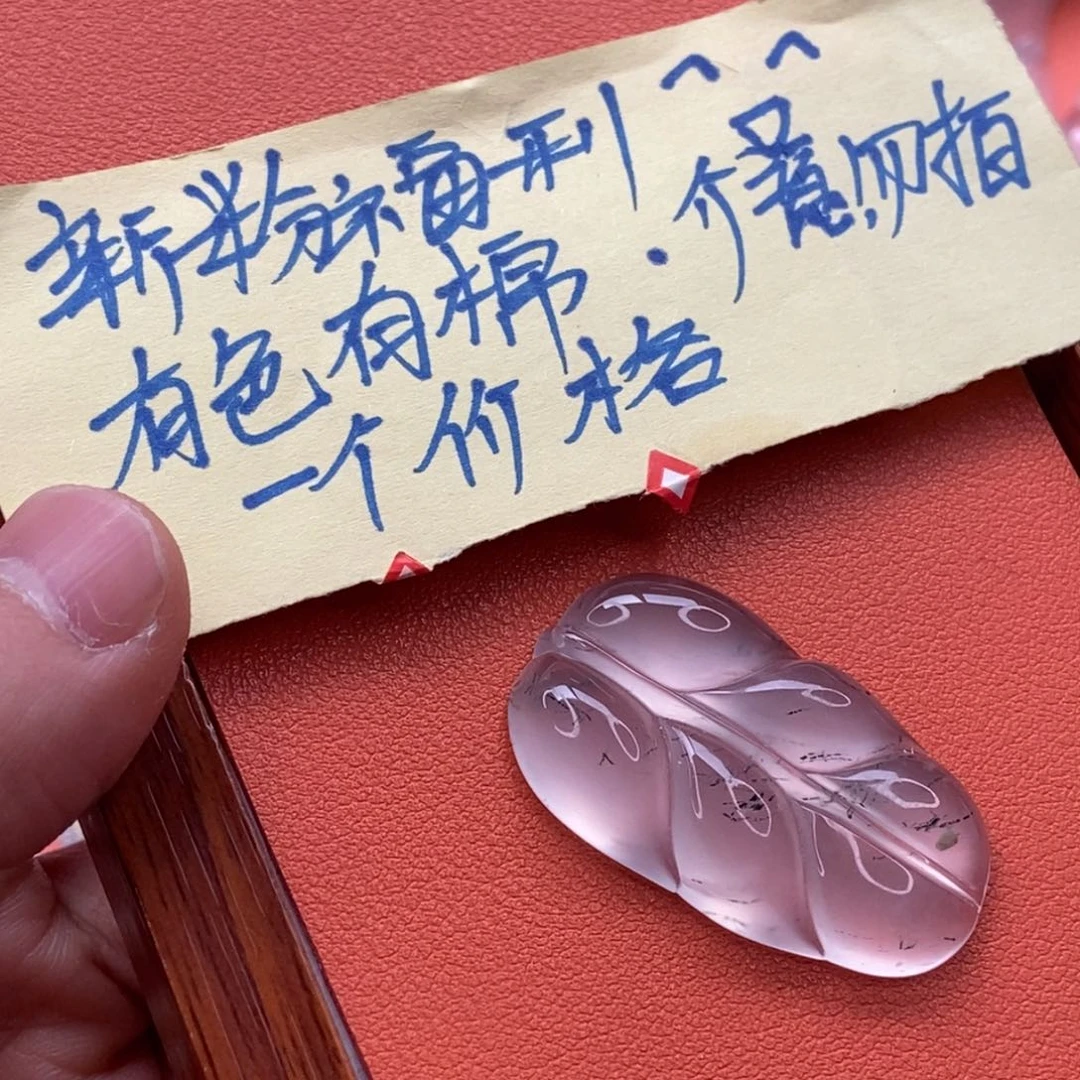 新粉宗雷利^^
有色有棉.介意勿拍
一个价格